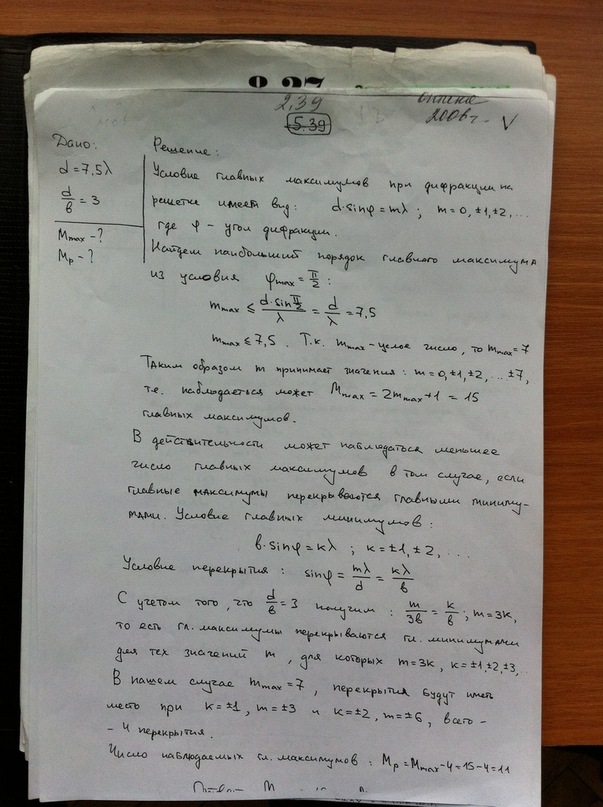 2.39
5.39
оптика
2006г. V
Дано:
d = 7,5λ
d/b = 3
Mmax - ?
Mp - ?
Решение:
Условие главных максимумов при дифракции на
решетке имеет вид: d·sinφ = mλ ; m = 0, ±1, ±2, ...
где φ – угол дифракции.
Найдем наибольший порядок главного максимума
из условия φmax = π/2 :
mmax ≤ d·sin π/2 / λ = d/λ = 7,5
mmax ≤ 7,5 . Т.к. mmax – целое число, то mmax = 7
Таким образом m принимает значения: m = 0, ±1, ±2, ... ±7,
т.е. наблюдаеться может Mmax = 2mmax + 1 = 15
главных максимумов.
В действительности может наблюдаться меньшее
число главных максимумов в том случае, если
главные максимумы перекрываются главными миниму-
мами. Условие главных минимумов:
b·sinφ = kλ ; k = ±1, ±2, ...
Условие перекрытия: sinφ = mλ/d = kλ/b
С учетом того, что d/b = 3 получим: m/3b = k/b ; m = 3k,
то есть гл. максимумы перекрываются гл. минимумами
для тех значений m, для которых m = 3k, k = ±1, ±2, ±3, ..
В нашем случае mmax = 7, перекрытия будут иметь
место при k = ±1, m = ±3 и k = ±2, m = ±6, всего -
- 4 перекрытия.
Число наблюдаемых гл. максимумов: Mp = Mmax - 4 = 15 - 4 = 11